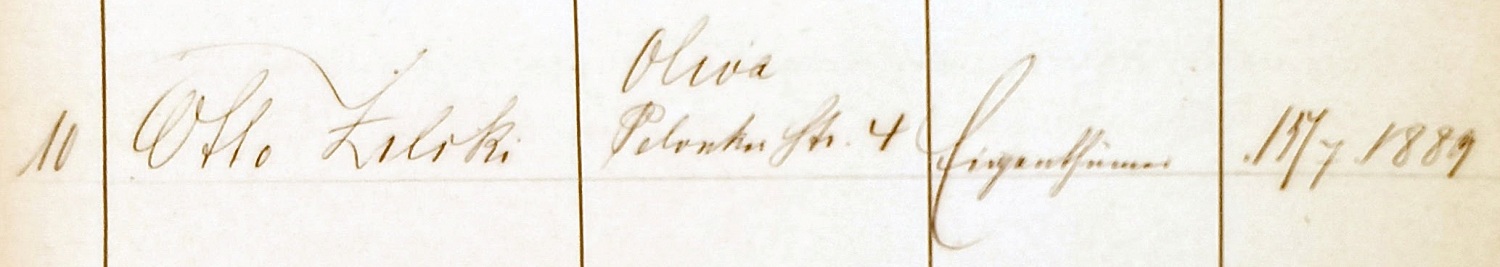 Oliva
10 Otto Zielski Pelonker Str. 4 Eigenthümer 15/7 1889